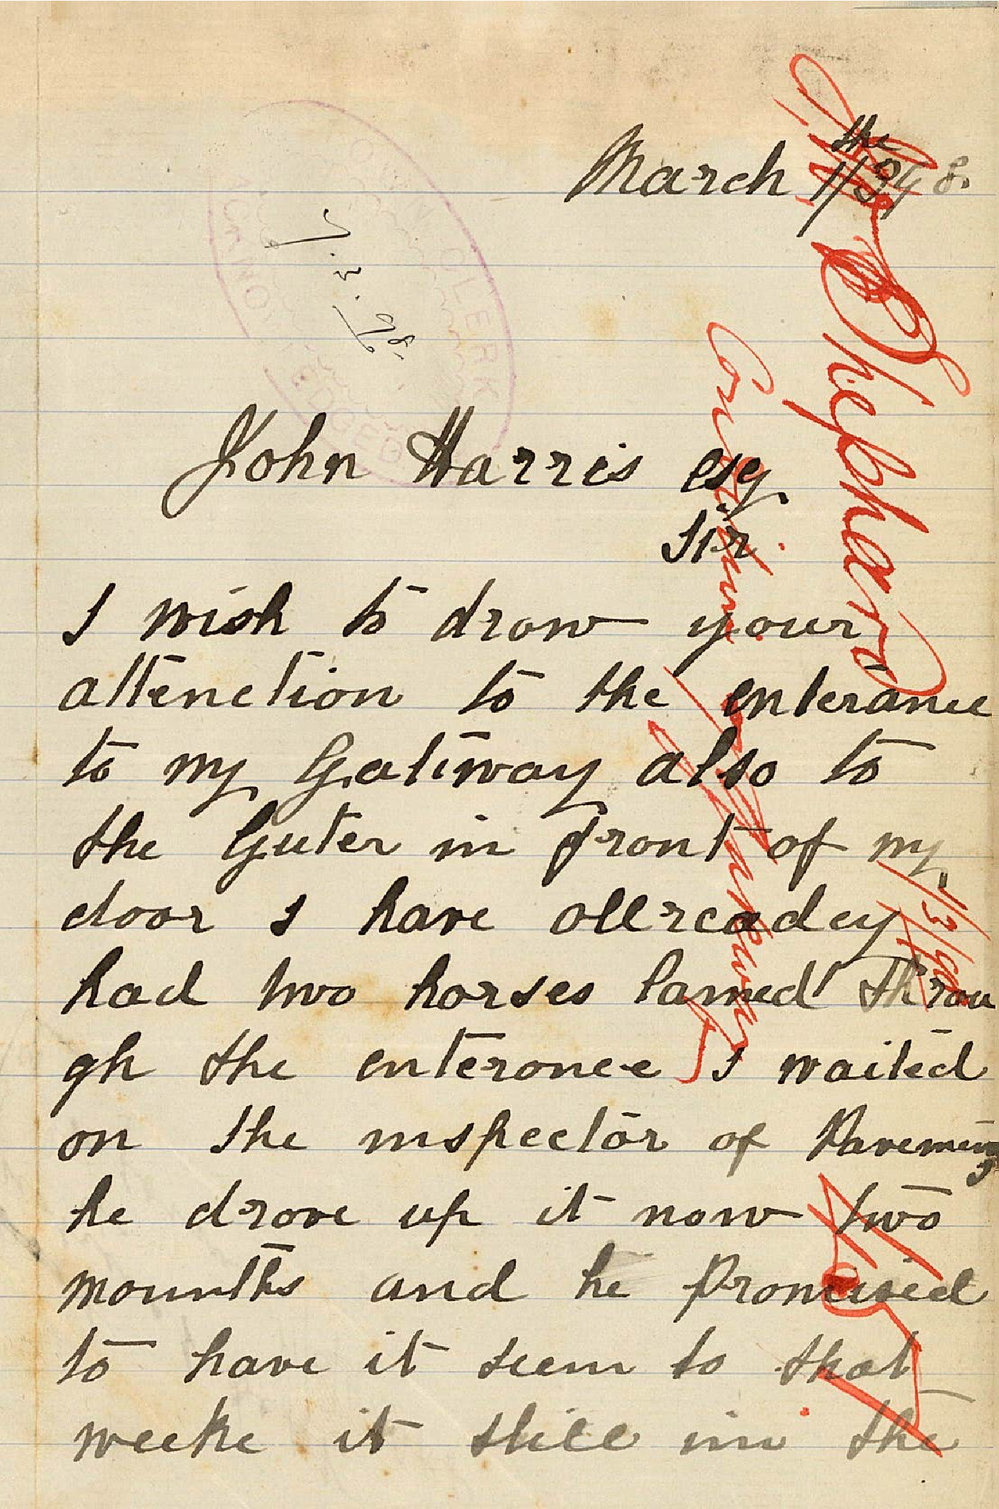 March 1the/3/98.
7.3.98.
John Harris esq
Sir
I wish to drow your
attenction to the enterance
to my Gatiway also to
the Guter in front of my
door I have ollreadey
had two horses lamed throu
gh the enteronce I waited
on the inspector of Pavemins
he drove up it now two
mounths and he Promised
to have it seem to that
weeke it still in the
Shephard
Con
11/3/98